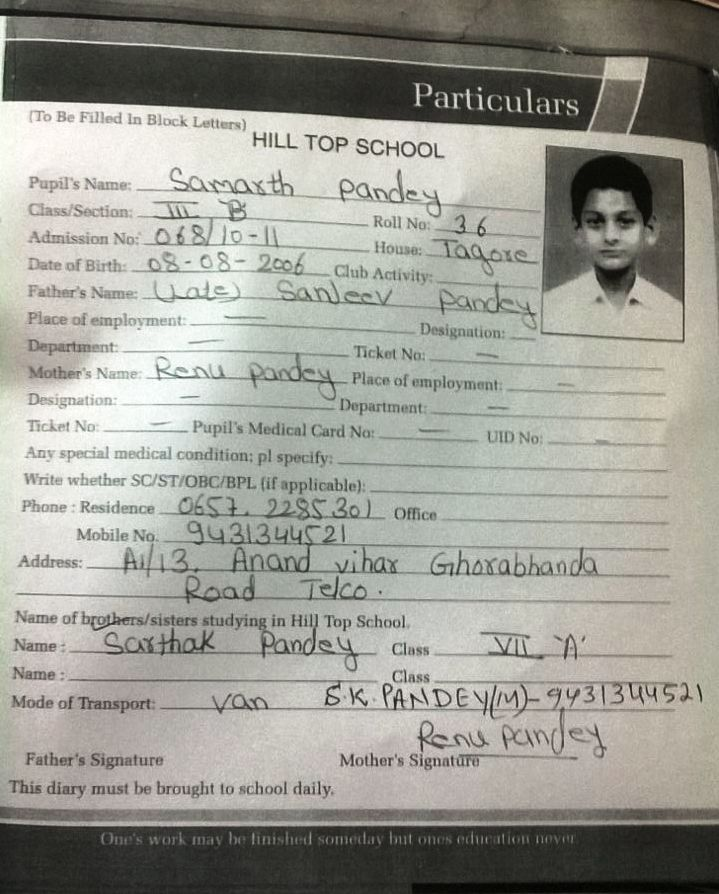 Particulars
(To Be Filled In Block Letters)
HILL TOP SCHOOL
Pupil's Name: Samarth Pandey
Class/Section: III B Roll No: 36
Admission No: 068/10-11 House: Tagore
Date of Birth: 08-08-2006 Club Activity:
Father's Name: (Late) Sanjeev Pandey
Place of employment: — Designation:
Department: — Ticket No: —
Mother's Name: Renu Pandey Place of employment: —
Designation: — Department: —
Ticket No: — Pupil's Medical Card No: — UID No: —
Any special medical condition; pl specify:
Write whether SC/ST/OBC/BPL (if applicable):
Phone : Residence 0657. 2285301 Office
Mobile No. 9431344521
Address: A1/13, Anand vihar Ghorabhanda
Road Telco.
Name of brothers/sisters studying in Hill Top School.
Name : Sarthak Pandey Class VII 'A'
Name : Class
Mode of Transport: van S.K. PANDEY(M)-9431344521
Renu Pandey
Father's Signature Mother's Signature
This diary must be brought to school daily.
One's work may be finished someday but ones education never